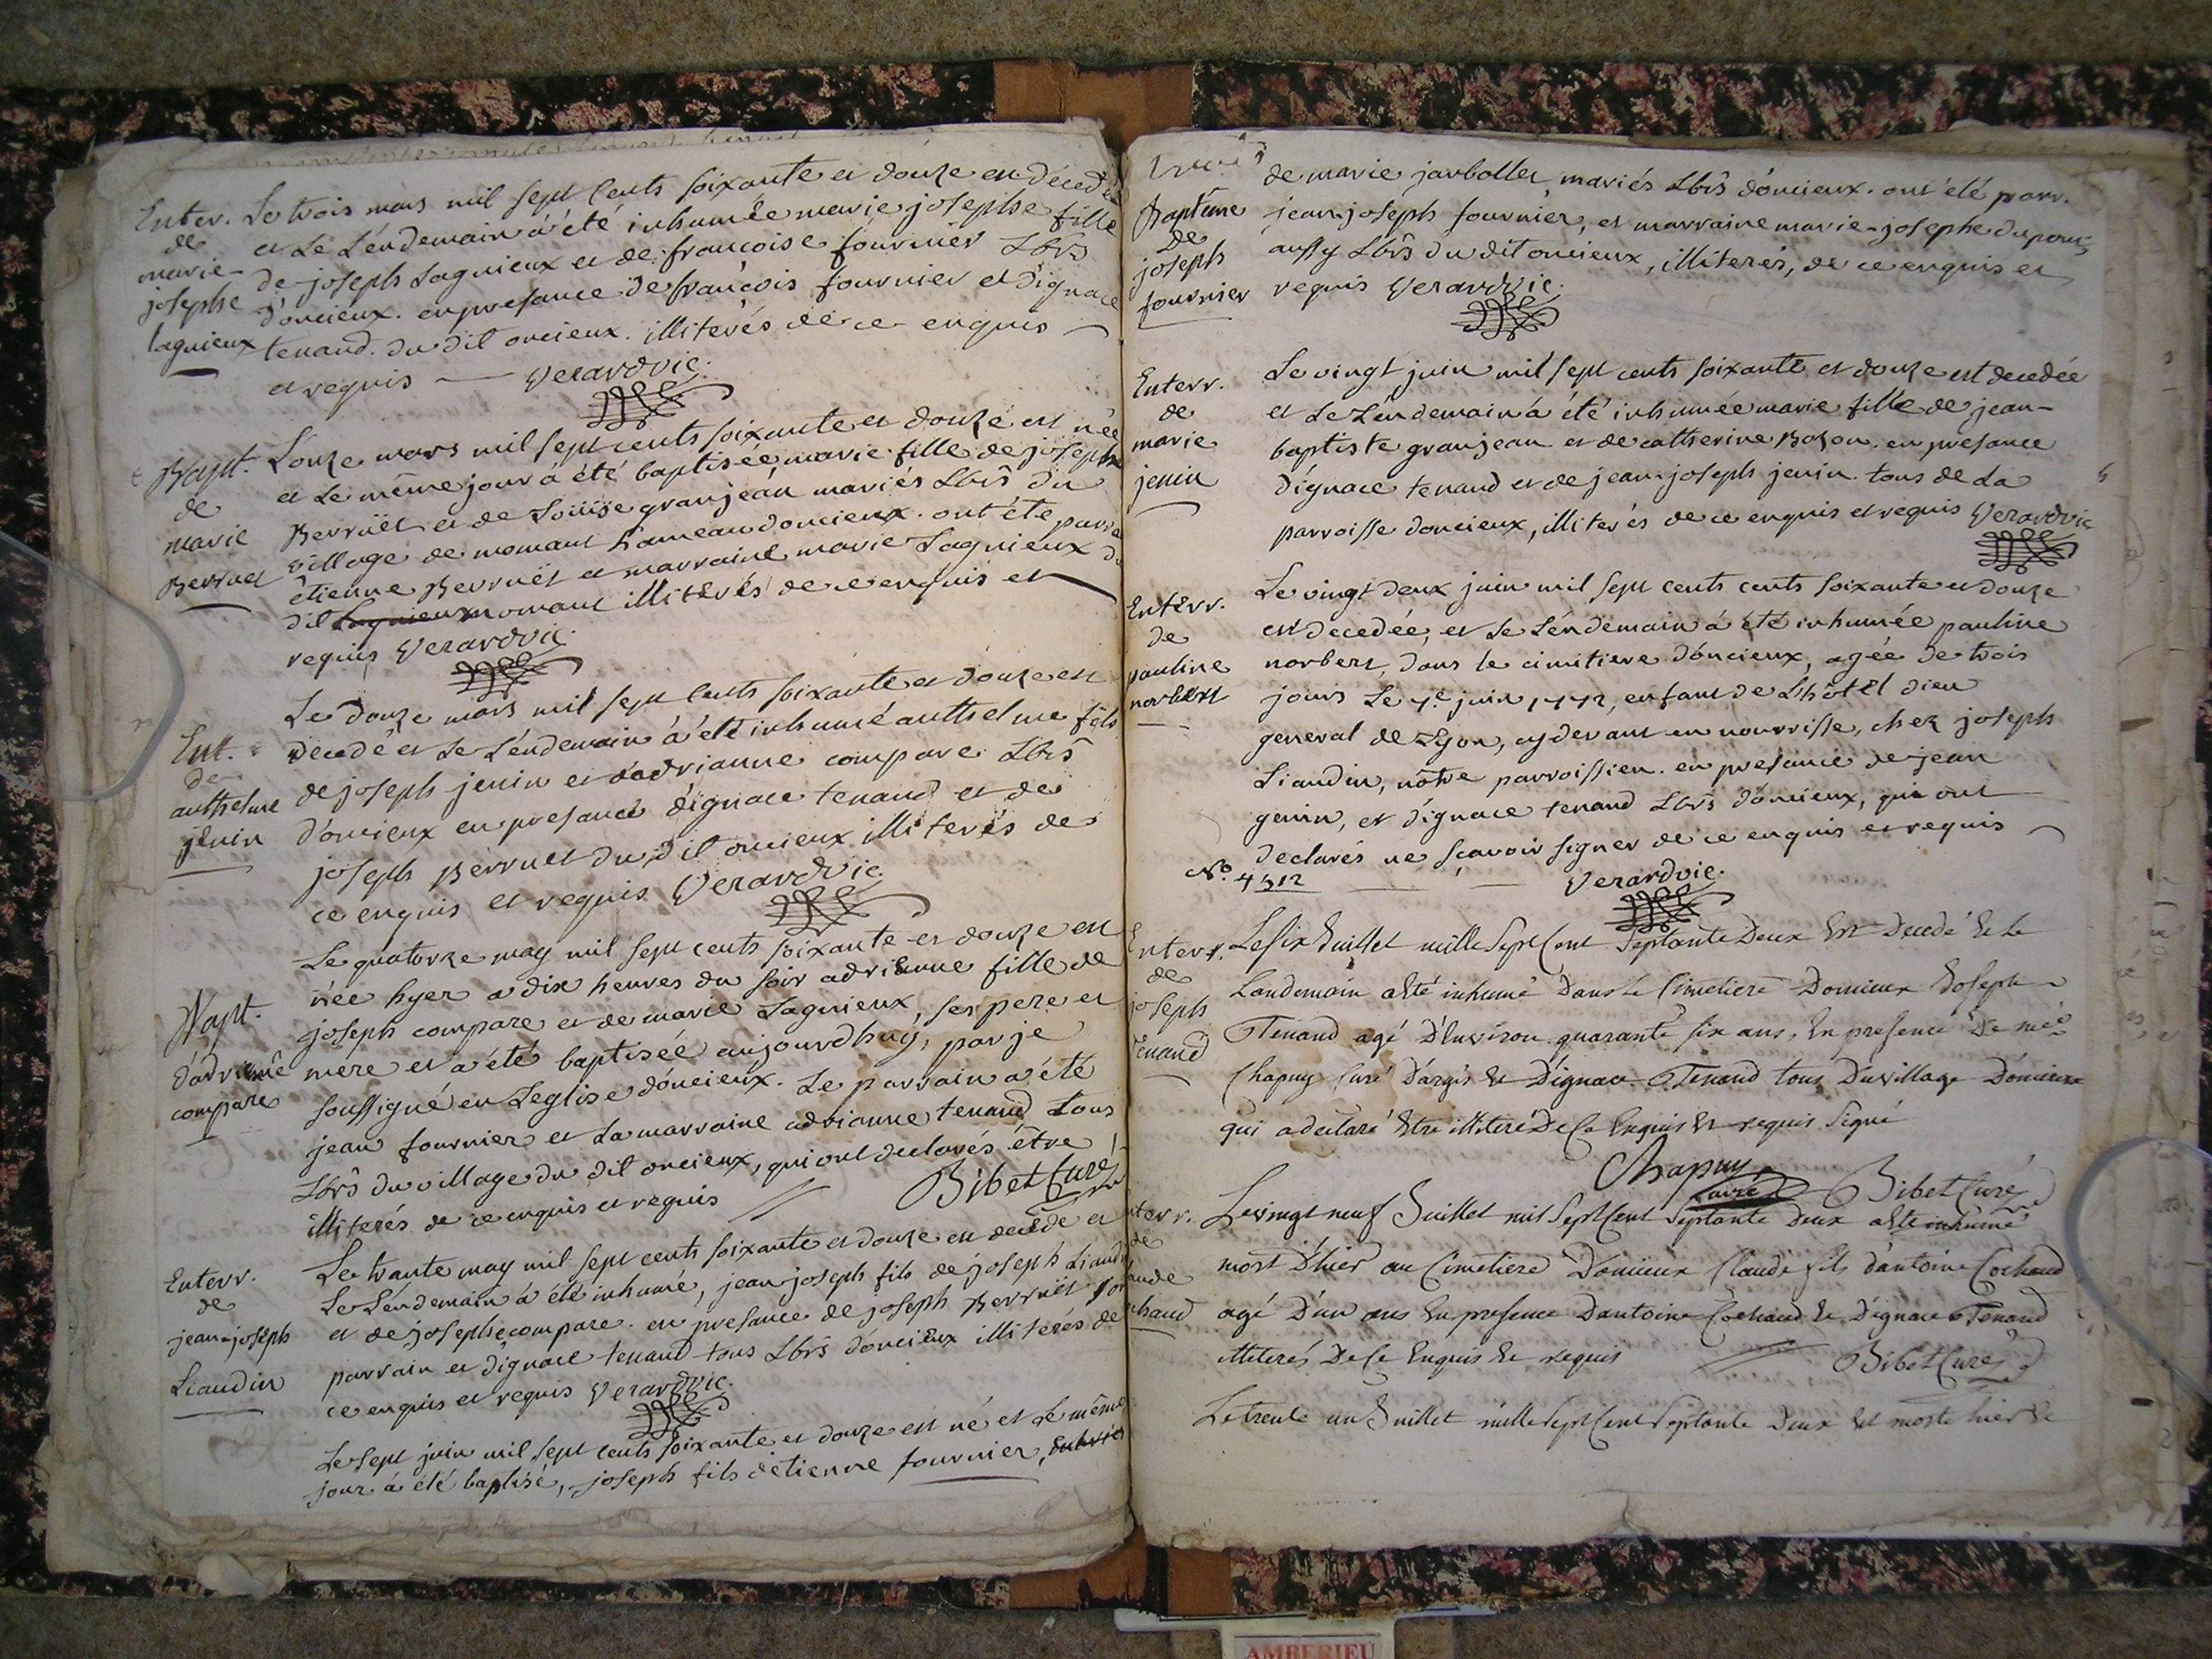 Enter.
de
marie-
josephe
lagnieux
Le trois mars mil sept cents soixante et douze est decedée
et Le Lendemain à été inhumée marie josephe fille
de joseph Lagnieux et de francoise fournier Lbrs
d'oncieux. en presance de francois fournier et d'ignace
tenand. du dit oncieux. illiterés de ce enquis
et requis — Verard vic.
Bapt.
de
marie
Berruet
L'onze mars mil sept cents soixante et douze est née
et Le même jour à été baptisée, marie fille de joseph
Berruët et de Loüise granjean mariés Lbrs du
village de momant hameau doncieux. ont éte parrain
étienne Berruët et marraine marie Lagnieux du
dit Lagnieux momant illiterés de ce enquis et
requis Verard vic.
Ent.
de
anthelme
jenin
Le douze mars mil sept cents soixante et douze est
decedé et Le Lendemain à été inhumé anthelme fils
de joseph jenin et d'adrianne compare Lbrs
d'oncieux en presance d'ignace tenand et de
joseph Berruet du dit oncieux illiterés de
ce enquis et requis Verard vic.
Bapt.
d'adrienne
compare
Le quatorze may mil sept cents soixante et douze est
née hyer a dix heures du soir adrienne fille de
joseph compare et de marie Lagnieux, ses pere et
mere et à été baptisée aujourdhuy, par je
soussigné en Leglise d'oncieux. Le parrain a été
jean fournier et La marraine adrianne tenand tous
Lbrs du village du dit oncieux, qui ont declarés être
illiterés de ce enquis et requis // Bibet Curé
Enterr.
de
jean-joseph
Liaudin
Le trante may mil sept cents soixante et douze est decede et
Le Lendemain à été inhumé, jean joseph fils de joseph Liaudin
et de josephe compare. en presance de joseph Berruët son
parrain et d'ignace tenand tous Lbrs d'oncieux illiterés de
ce enquis et requis Verard vic.
Le sept juin mil sept cents soixante et douze est né et Le même
jour à été baptisé, joseph fils détienne fournier,
Baptême
de
joseph
fournier
de marie jarbollet, mariés Lbrs d'oncieux. ont été parr.
jean-joseph fournier, et marraine marie-josephe dupont,
aussy Lbrs du dit oncieux, illiterés, de ce enquis et
requis Verard vic.
Enterr.
de
marie
jenin
Le vingt juin mil sept cents soixante et douze est decedée
et Le Lendemain à été inhumée marie fille de jean-
baptiste granjean et de catherine Bozon. en presance
d'ignace tenand et de jean-joseph jenin. tous de La
parroisse doncieux, illiterés de ce enquis et requis Verard vic
Enterr.
de
pauline
norbert
Le vingt deux juin mil sept cents cents soixante et douze
est decedée, et Le Lendemain à été inhumée pauline
norbert, dans le cimitiere d'oncieux, agée de trois
jours Le 7.e juin 1772, enfant de L'hôtel dieu
general de Lyon, cy devant en nourrisse, chez joseph
Liaudin, nôtre parroissien. en presance de jean
genin, et d'ignace tenand Lbrs d'oncieux, qui ont
declarés ne sçavoir signer de ce enquis et requis
No. 4512 — — Verard vic.
Enterr.
de
joseph
tenand
Le six Juillet mille Sept Cent Septante Deux Est Decedé & Le
Landemain a Eté inhumé Dans Le Cimetiere Doncieux Joseph
Tenand agé D'Environ quarante six ans, En presence De
Chapuy Curé D'argis & D'ignace Tenand tous Du village Doncieux
qui a declaré Etre illiteré De Ce Enquis & requis Signé
Chapuy
Curé Bibet Curé
nterr.
de
aude
chaud
Le vingt neuf Juillet mil Sept Cent Septante Deux a Eté inhumé
mort D'hier au Cimetiere Doncieux Claude fils d'antoine Cochaud
agé D'un ans En presence D'antoine Cochaud & D'ignace Tenand
illiterés De Ce Enquis & requis // Bibet Curé
Le trente un Juillet mille Sept Cent Septante Deux Est morte hier &
AMBERIEU